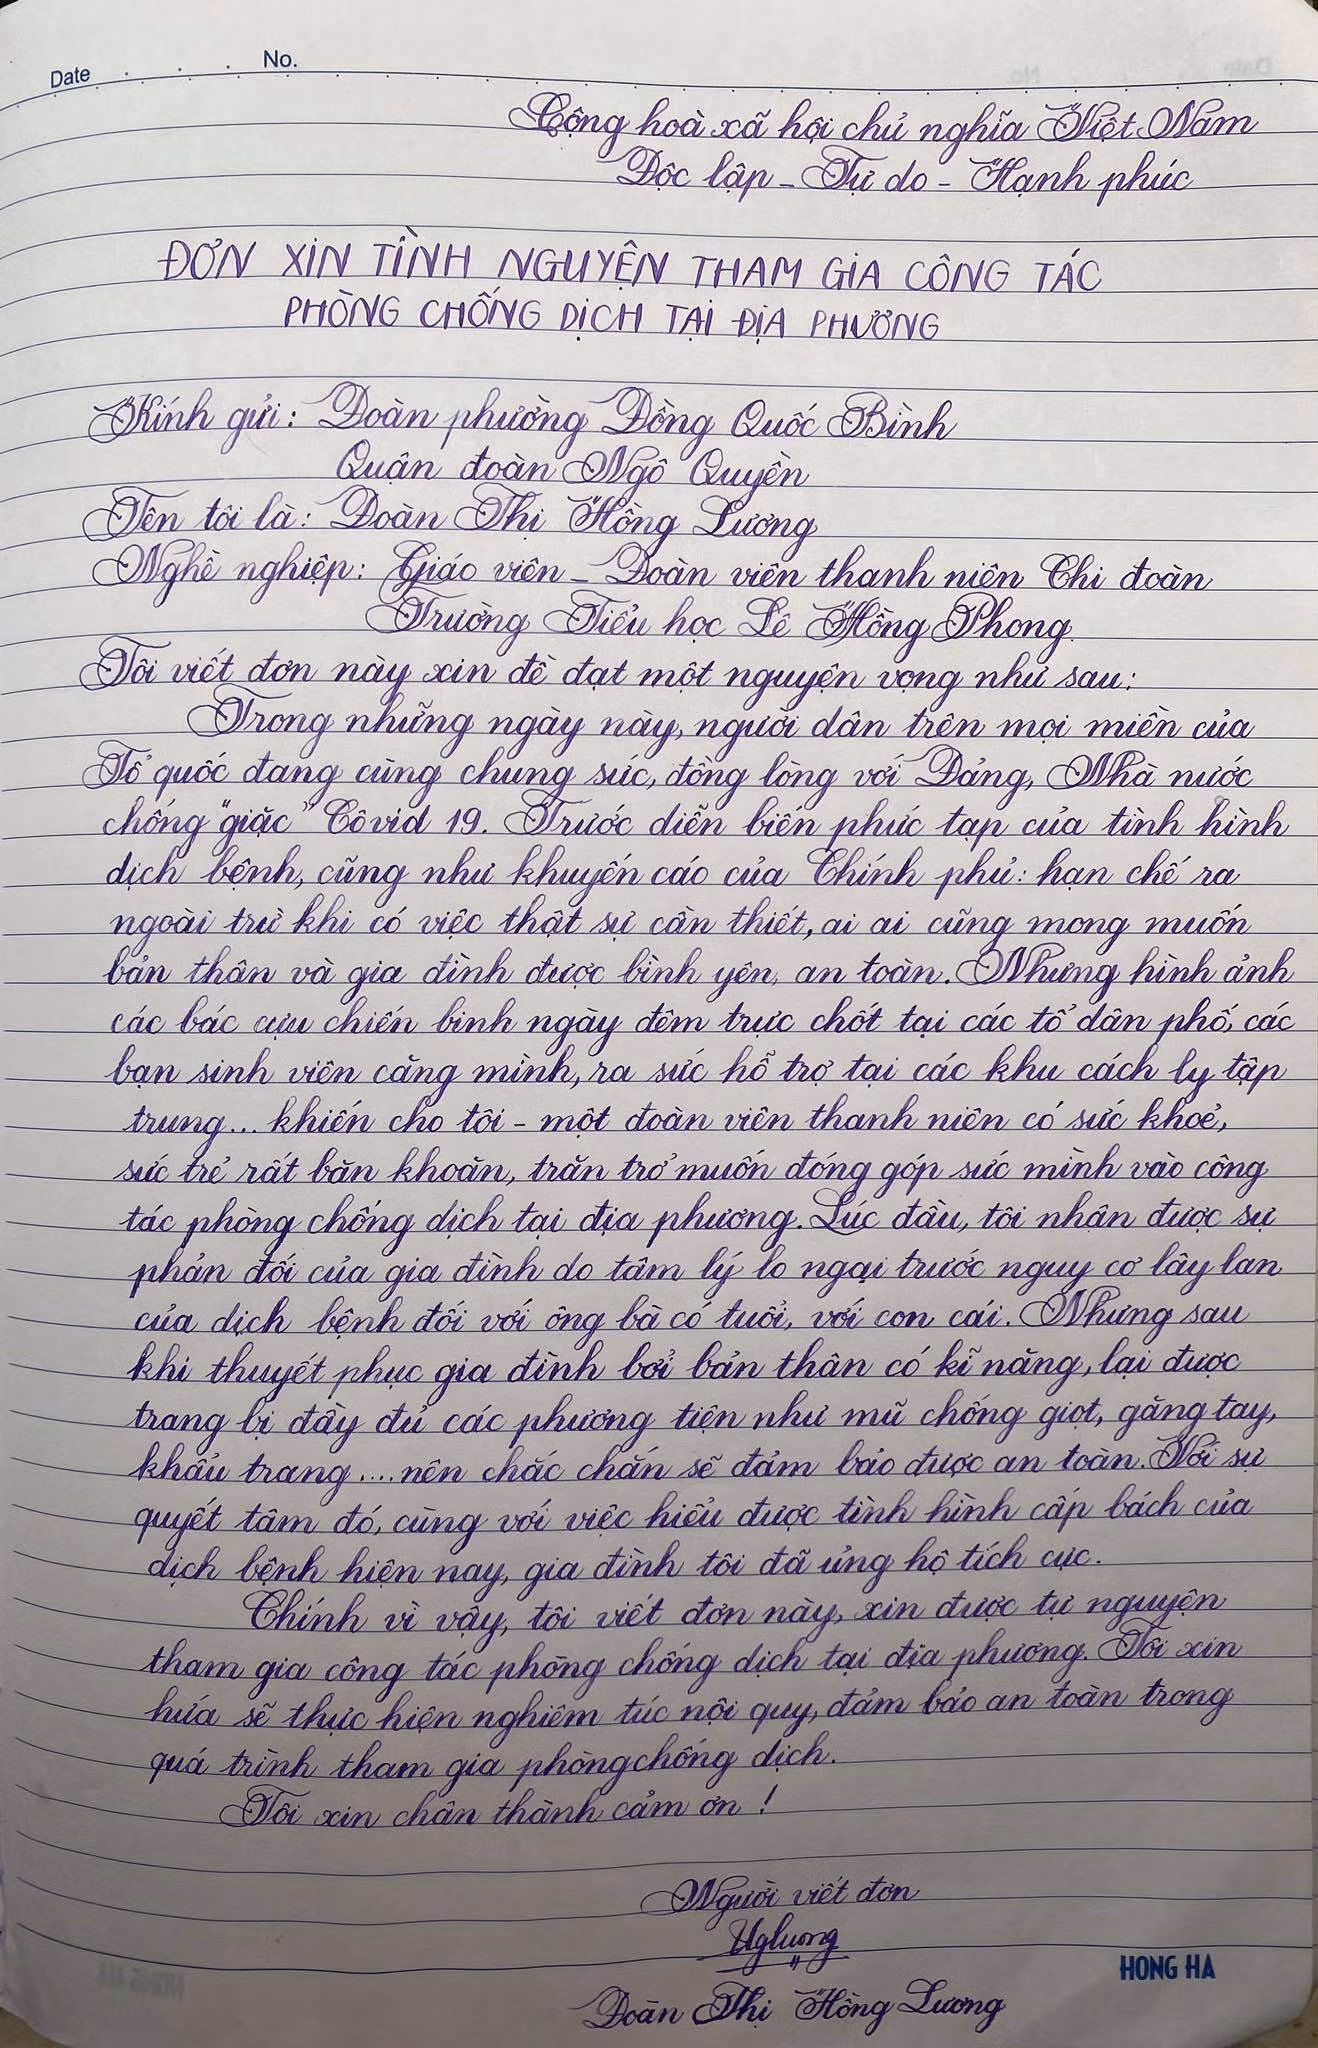 Date No.
Cộng hoà xã hội chủ nghĩa Việt Nam
Độc lập - Tự do - Hạnh phúc
ĐƠN XIN TÌNH NGUYỆN THAM GIA CÔNG TÁC
PHÒNG CHỐNG DỊCH TẠI ĐỊA PHƯƠNG
Kính gửi: Đoàn phường Đồng Quốc Bình
Quận đoàn Ngô Quyền
Tên tôi là: Đoàn Thị Hồng Lương
Nghề nghiệp: Giáo viên - Đoàn viên thanh niên Chi đoàn
Trường Tiểu học Lê Hồng Phong
Tôi viết đơn này xin đề đạt một nguyện vọng như sau:
Trong những ngày này, người dân trên mọi miền của
Tổ quốc đang cùng chung sức, đồng lòng với Đảng, Nhà nước
chống "giặc" Côvid 19. Trước diễn biến phức tạp của tình hình
dịch bệnh, cũng như khuyến cáo của Chính phủ: hạn chế ra
ngoài trừ khi có việc thật sự cần thiết, ai ai cũng mong muốn
bản thân và gia đình được bình yên, an toàn. Nhưng hình ảnh
các bác cựu chiến binh ngày đêm trực chốt tại các tổ dân phố, các
bạn sinh viên căng mình, ra sức hỗ trợ tại các khu cách ly tập
trung... khiến cho tôi - một đoàn viên thanh niên có sức khoẻ,
sức trẻ rất băn khoăn, trăn trở muốn đóng góp sức mình vào công
tác phòng chống dịch tại địa phương. Lúc đầu, tôi nhận được sự
phản đối của gia đình do tâm lý lo ngại trước nguy cơ lây lan
của dịch bệnh đối với ông bà có tuổi, với con cái. Nhưng sau
khi thuyết phục gia đình bởi bản thân có kĩ năng, lại được
trang bị đầy đủ các phương tiện như mũ chống giọt, găng tay,
khẩu trang.... nên chắc chắn sẽ đảm bảo được an toàn. Với sự
quyết tâm đó, cùng với việc hiểu được tình hình cấp bách của
dịch bệnh hiện nay, gia đình tôi đã ủng hộ tích cực.
Chính vì vậy, tôi viết đơn này, xin được tự nguyện
tham gia công tác phòng chống dịch tại địa phương. Tôi xin
hứa sẽ thực hiện nghiêm túc nội quy, đảm bảo an toàn trong
quá trình tham gia phòng chống dịch.
Tôi xin chân thành cảm ơn !
Người viết đơn
HONG HA
Đoàn Thị Hồng Lương